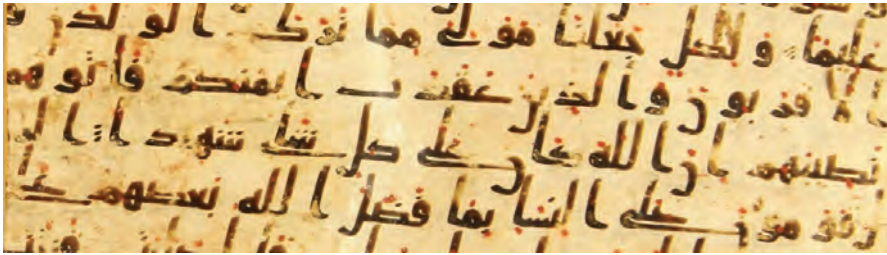 عليما ولكل جعلنا مولى مما ترك الولدن
الاقربون والذين عقدت ايمنكم فاتوهم
نصيبهم ان الله كان على كل شى شهيدا
قومون على النسا بما فضل الله بعضهم على